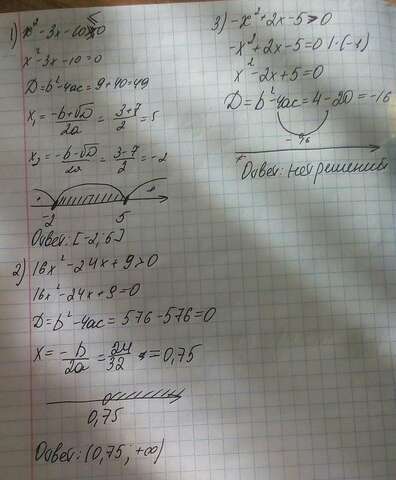 1) x² - 3x - 10 ≤ 0
x² - 3x - 10 = 0
D = b² - 4ac = 9 + 40 = 49
x₁ = (-b + √D)/2a = (3 + 7)/2 = 5
x₂ = (-b - √D)/2a = (3 - 7)/2 = -2
-2 5
Ответ: [-2; 5]
2) 16x² - 24x + 9 > 0
16x² - 24x + 9 = 0
D = b² - 4ac = 576 - 576 = 0
x = -b/2a = 24/32 = 0,75
0,75
Ответ: (0,75; +∞)
3) -x² + 2x - 5 > 0
-x² + 2x - 5 = 0 | ·(-1)
x² - 2x + 5 = 0
D = b² - 4ac = 4 - 20 = -16
Ответ: нет решений